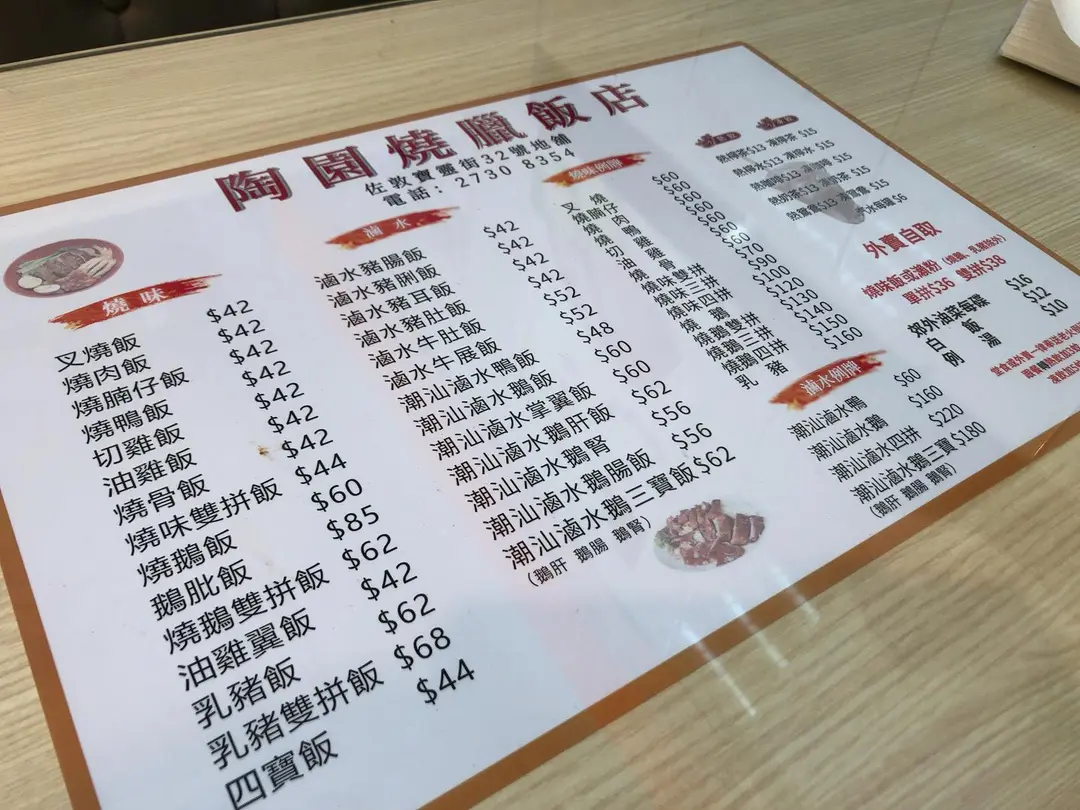 陶園燒臘飯店
佐敦寶靈街32號地舖
電話：2730 8354
燒味
叉燒飯 $42
燒肉飯 $42
燒腩仔飯 $42
燒鴨飯 $42
切雞飯 $42
油雞飯 $42
燒骨飯 $42
燒味雙拼飯 $44
燒鵝飯 $60
鵝肶飯 $85
燒鵝雙拼飯 $62
油雞翼飯 $42
乳豬飯 $62
乳豬雙拼飯 $68
四寶飯 $44
滷水
滷水豬腸飯 $42
滷水豬脷飯 $42
滷水豬耳飯 $42
滷水豬肚飯 $42
滷水牛肚飯 $52
滷水牛展飯 $52
潮汕滷水鴨飯 $48
潮汕滷水鵝飯 $60
潮汕滷水掌翼飯 $60
潮汕滷水鵝肝飯 $62
潮汕滷水鵝腎 $56
潮汕滷水鵝腸飯 $56
潮汕滷水鵝三寶飯 $62
(鵝肝 鵝腸 鵝腎)
燒味例牌
叉燒 $60
燒腩仔 $60
燒肉 $60
燒鴨 $60
切雞 $60
油雞
燒骨 $70
燒味雙拼 $90
燒味三拼 $100
燒味四拼 $120
燒鵝
燒鵝雙拼 $130
燒鵝三拼 $140
燒鵝四拼 $150
乳豬 $160
滷水例牌
潮汕滷水鴨 $60
潮汕滷水鵝 $160
潮汕滷水四拼 $220
潮汕滷水鵝三寶 $180
(鵝肝 鵝腸 鵝腎)
熱檸茶$13 凍檸茶 $15
熱檸水$13 凍檸水 $15
熱咖啡$13 凍咖啡 $15
熱奶茶$13 凍奶茶 $15
$13 $15
$6
外賣自取
燒味飯或瀨粉 (燒鵝、乳豬除外)
單拼$36 雙拼$38
郊外油菜每碟 $16
白飯 $12
例湯 $10